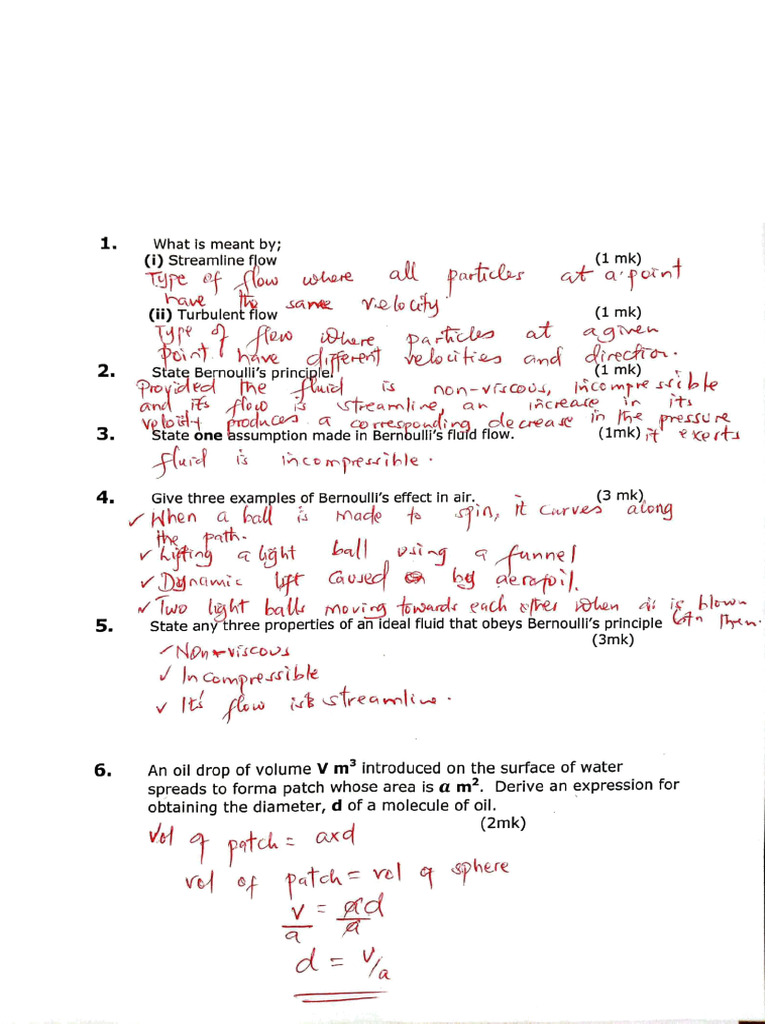 1. What is meant by;
(i) Streamline flow (1 mk)
Type of flow where all particles at a point
have the same velocity.
(ii) Turbulent flow (1 mk)
Type of flow where particles at a given
point have different velocities and direction.
2. State Bernoulli's principle. (1 mk)
Provided the fluid is non-viscous, incompressible
and its flow is streamline, an increase in its
velocity produces a corresponding decrease in the pressure
3. State one assumption made in Bernoulli's fluid flow. (1mk) it exerts
fluid is incompressible.
4. Give three examples of Bernoulli's effect in air. (3 mk)
✓ When a ball is made to spin, it curves along
the path.
✓ Lifting a light ball using a funnel
✓ Dynamic lift caused by aerofoil.
✓ Two light balls moving towards each other when air is blown
5. State any three properties of an ideal fluid that obeys Bernoulli's principle btn them.
(3mk)
✓ Non-viscous
✓ Incompressible
✓ It's flow is streamline.
6. An oil drop of volume V m³ introduced on the surface of water
spreads to forma patch whose area is a m². Derive an expression for
obtaining the diameter, d of a molecule of oil.
(2mk)
Vol of patch = axd
vol of patch = vol of sphere
V/a = ad/a
d = V/a